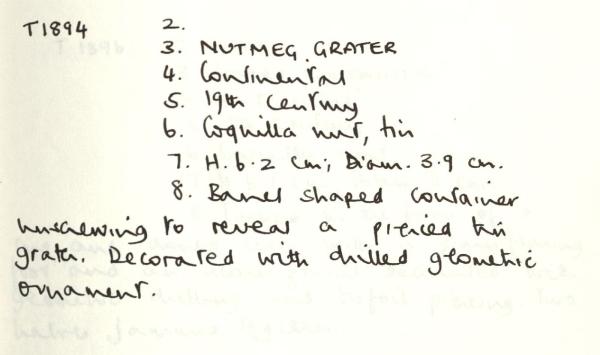 T1894 2.
3. NUTMEG GRATER
4. Continental
5. 19th century
6. Coquilla nut, tin
7. H. 6.2 cm; Diam. 3.9 cm.
8. Barrel shaped container
unscrewing to reveal a pierced tin
grater. Decorated with drilled geometric
ornament.